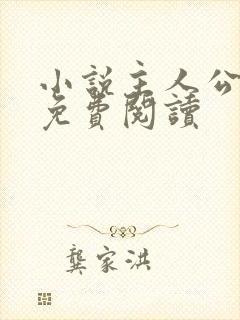 小說主人公
免費閱讀
龔家洪